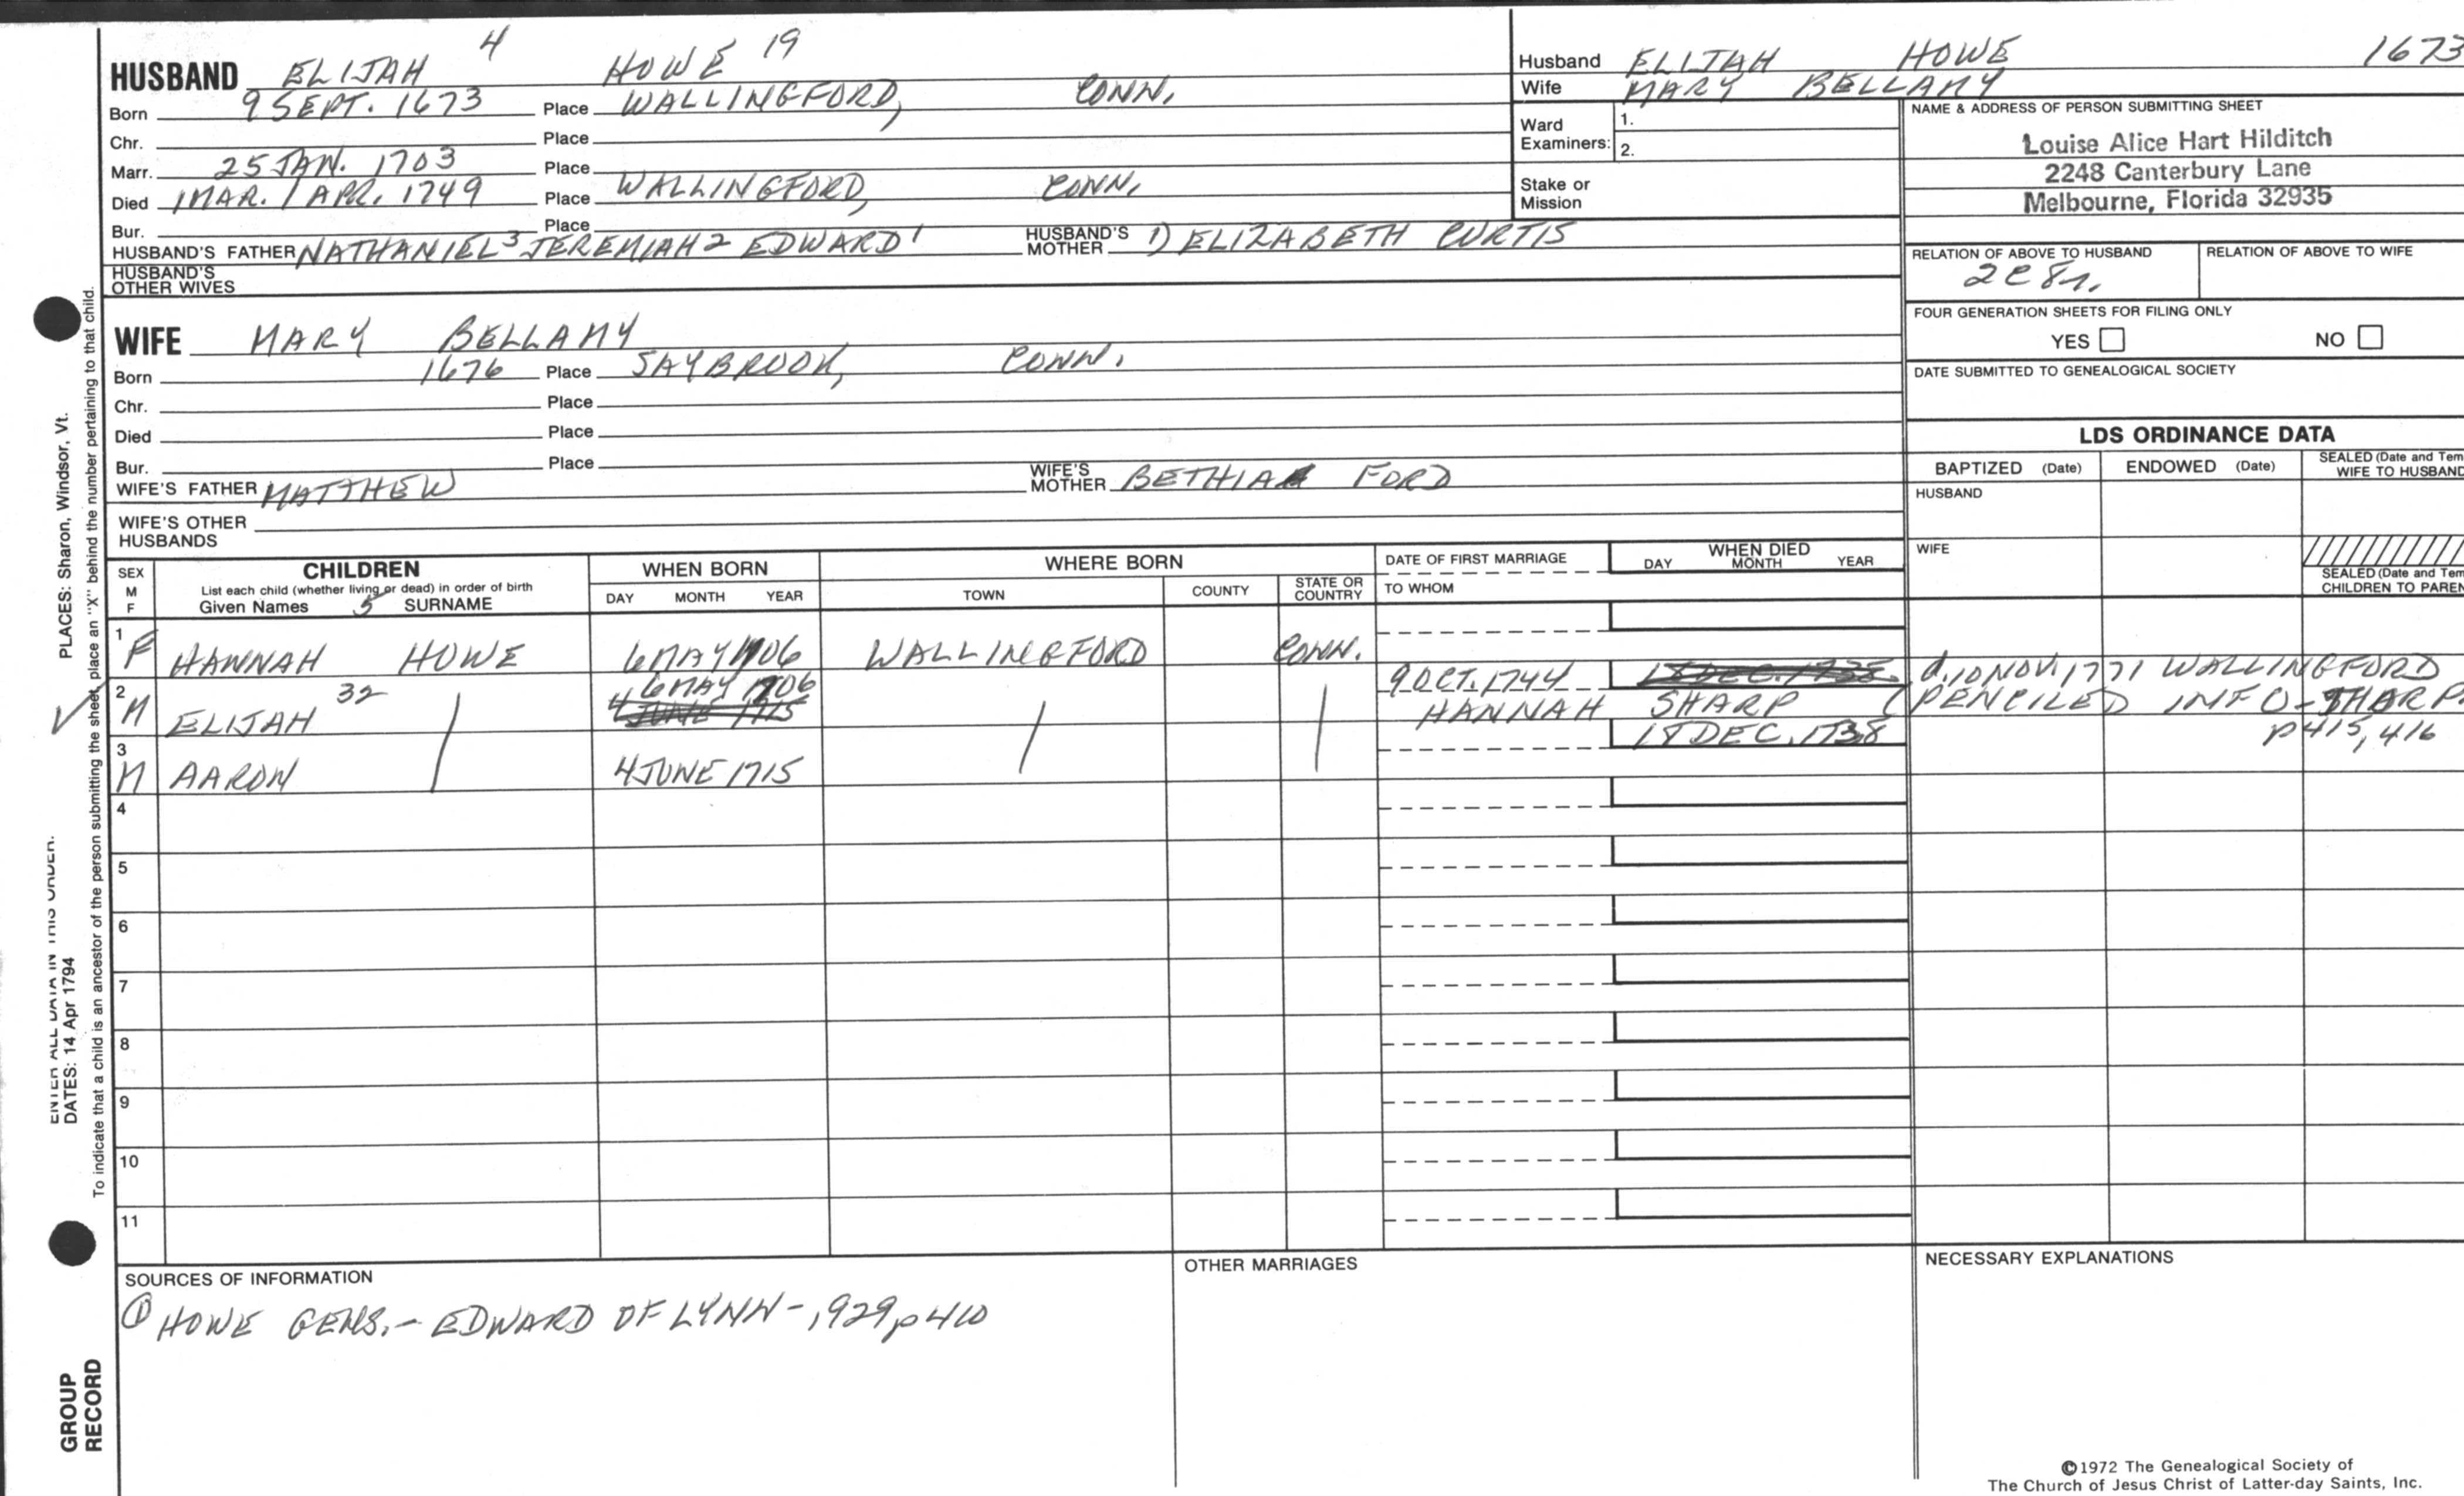 HUSBAND ELIJAH 4 HOWE 19
Born 9 SEPT. 1673 Place WALLINGFORD, CONN.
Chr. Place
Marr. 25 JAN. 1703 Place
Died 1 MAR. / APR. 1749 Place WALLINGFORD, CONN.
Bur. Place
HUSBAND'S FATHER NATHANIEL 3 JEREMIAH 2 EDWARD 1 HUSBAND'S MOTHER 1) ELIZABETH CURTIS
HUSBAND'S OTHER WIVES
Husband ELIJAH HOWE 1673
Wife MARY BELLAMY
Ward Examiners: 1.
2.
Stake or Mission
NAME & ADDRESS OF PERSON SUBMITTING SHEET
Louise Alice Hart Hilditch
2248 Canterbury Lane
Melbourne, Florida 32935
RELATION OF ABOVE TO HUSBAND RELATION OF ABOVE TO WIFE
2C8r.
FOUR GENERATION SHEETS FOR FILING ONLY
YES NO
DATE SUBMITTED TO GENEALOGICAL SOCIETY
WIFE MARY BELLAMY
Born 1676 Place SAYBROOK, CONN.
Chr. Place
Died Place
Bur. Place
WIFE'S FATHER MATTHEW WIFE'S MOTHER BETHIA FORD
WIFE'S OTHER HUSBANDS
LDS ORDINANCE DATA
BAPTIZED (Date) ENDOWED (Date) SEALED (Date and Tem
WIFE TO HUSBAND
HUSBAND
WIFE
SEALED (Date and Tem
CHILDREN TO PAREN
SEX
M
F
CHILDREN
List each child (whether living or dead) in order of birth
Given Names 5 SURNAME
WHEN BORN
DAY MONTH YEAR
WHERE BORN
TOWN COUNTY STATE OR COUNTRY
DATE OF FIRST MARRIAGE
TO WHOM
WHEN DIED
DAY MONTH YEAR
1 F HANNAH HOWE 6 MAY 1706 WALLINGFORD CONN.
2 M ELIJAH 32 6 MAY 1706 4 JUNE 1715 9 OCT. 1744 18 DEC. 1738 d. 10 NOV. 1771 WALLINGFORD
HANNAH SHARP (PENCILED INFO - SHARP
p 415, 416
3 M AARON 4 JUNE 1715 18 DEC. 1738
4
5
6
7
8
9
10
11
SOURCES OF INFORMATION
① HOWE GENS. - EDWARD OF LYNN - 1929, p 410
OTHER MARRIAGES
NECESSARY EXPLANATIONS
©1972 The Genealogical Society of
The Church of Jesus Christ of Latter-day Saints, Inc.
PLACES: Sharon, Windsor, Vt.
To indicate that a child is an ancestor of the person submitting the sheet, place an "X" behind the number pertaining to that child.
ENTER ALL DATA IN THIS ORDER:
DATES: 14 Apr 1794
GROUP
RECORD